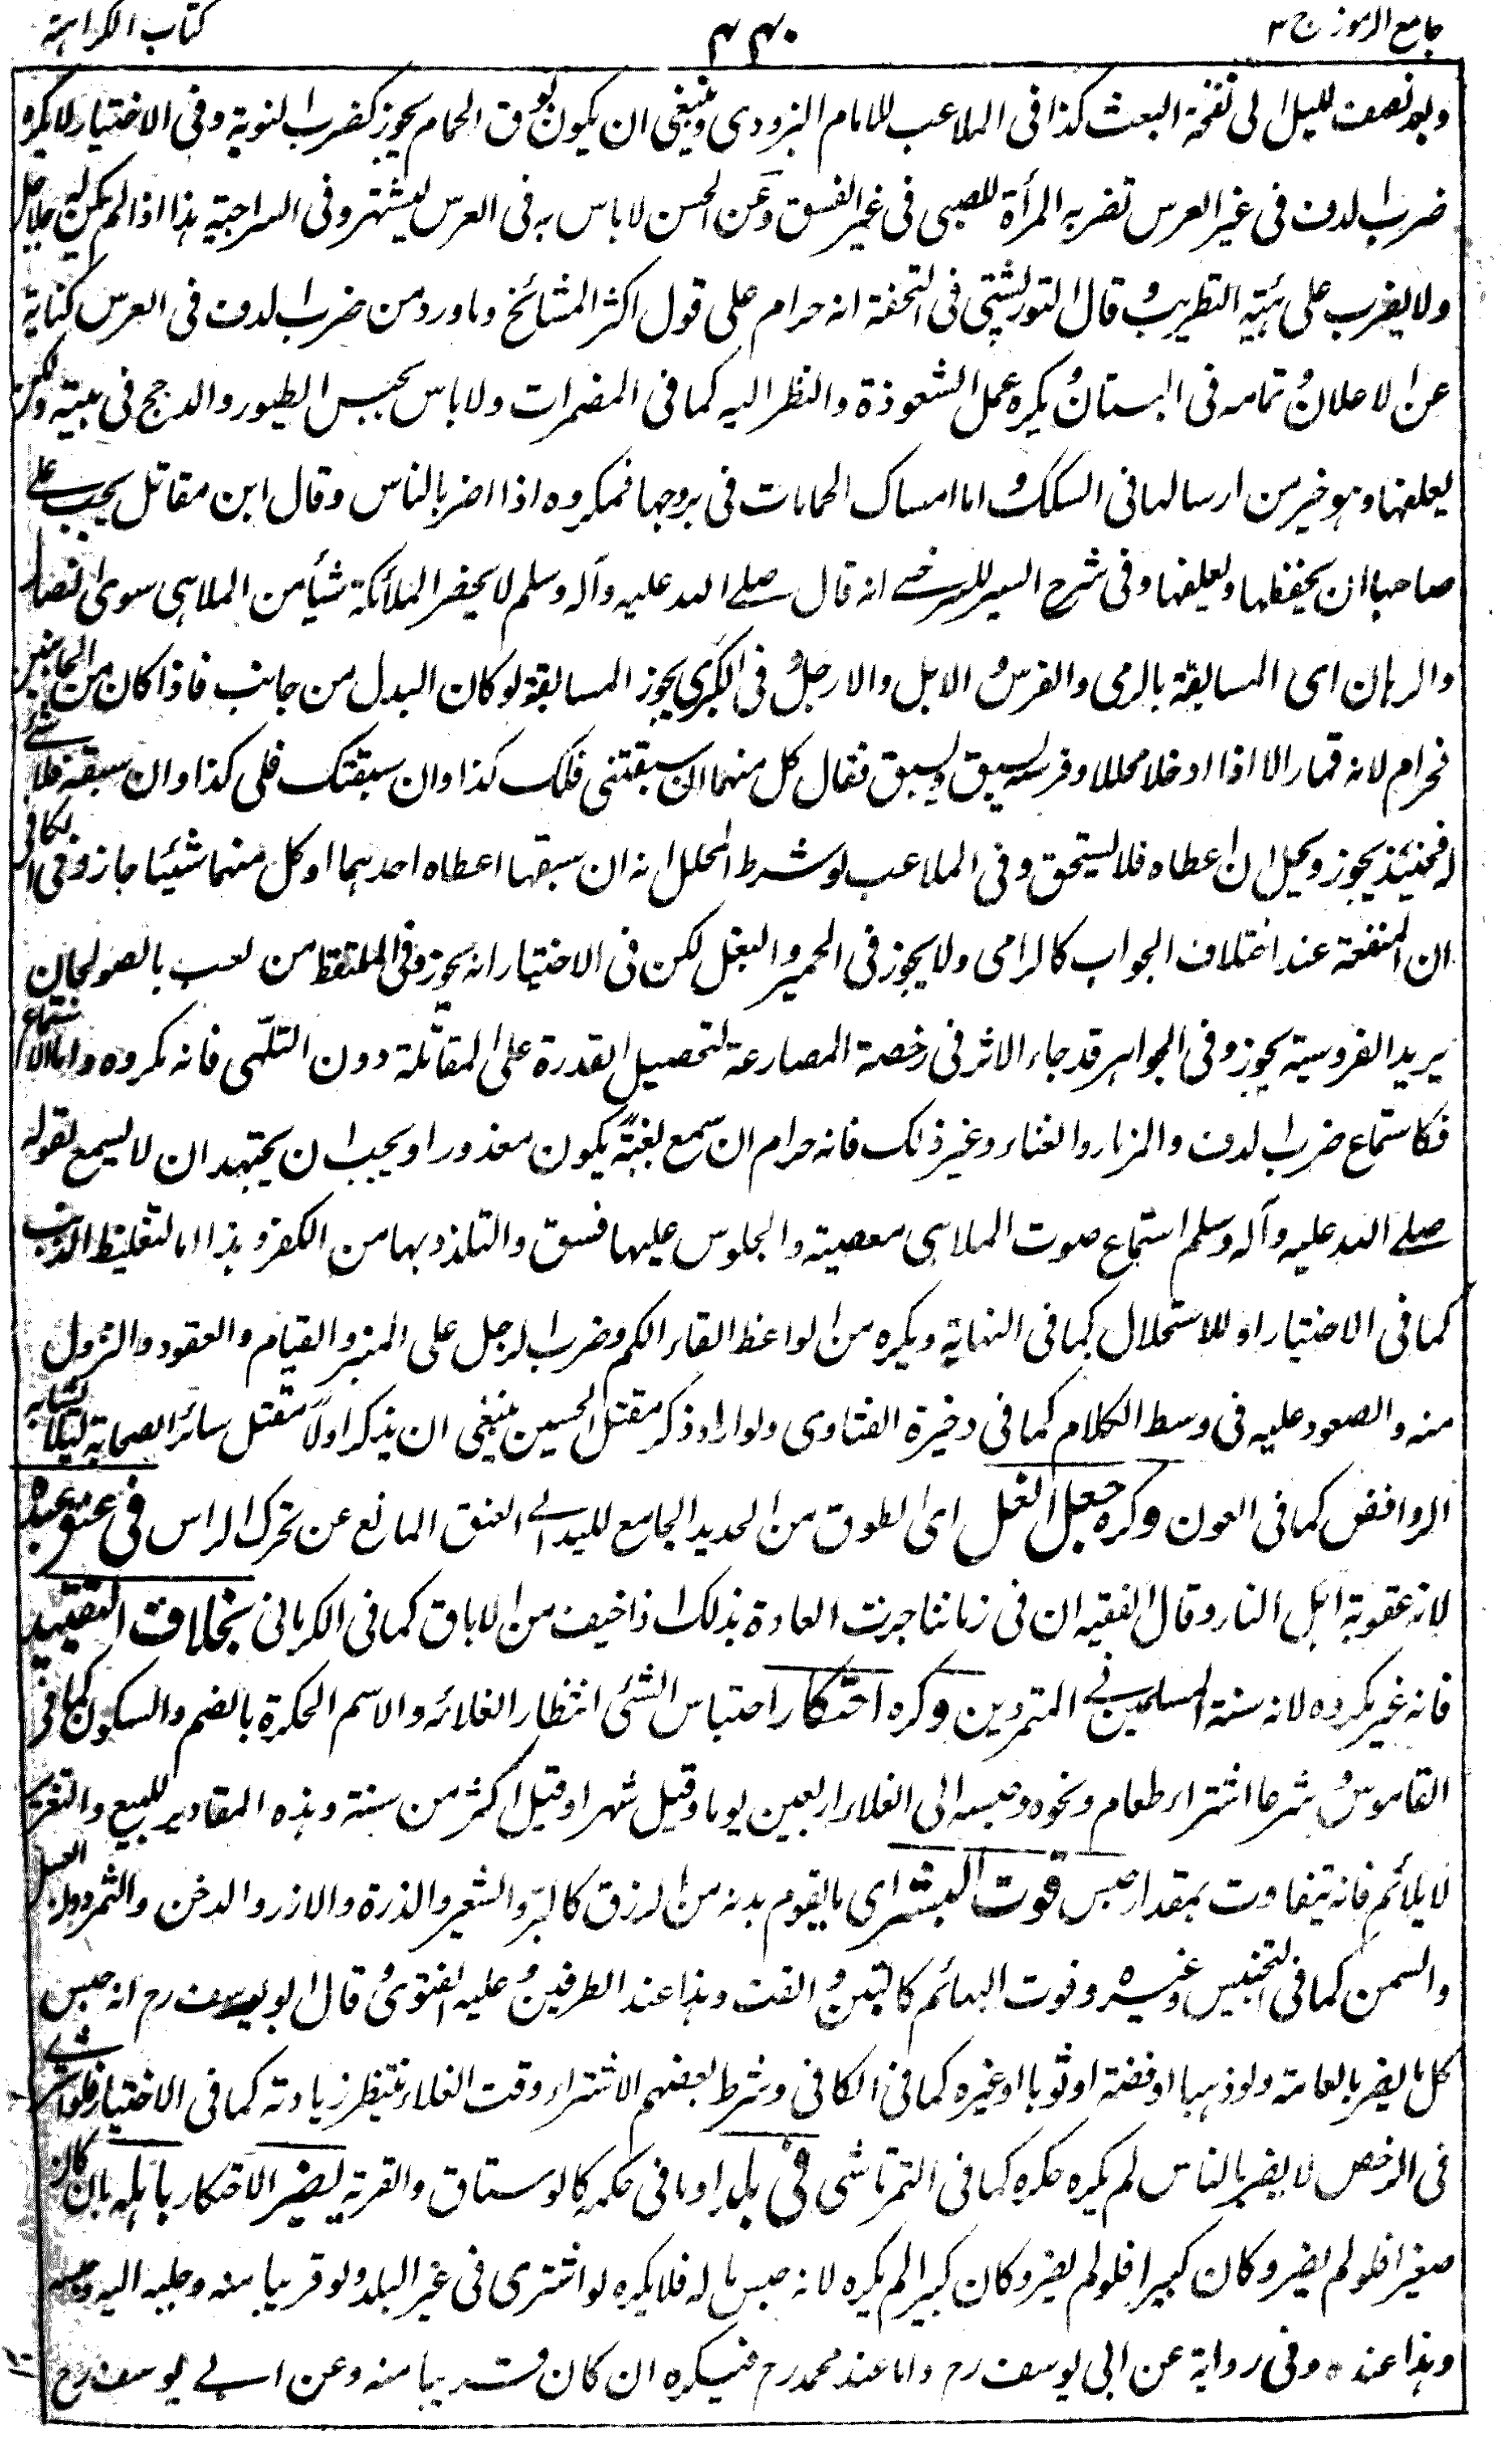 جامع الرموز ج ٣
٤٤٠
كتاب الكراهية
وبعد نصف لليل الى نفخة البعث كذا فى الملاعب للامام البزدوى وينبغى ان يكون بوق الحمام يجوز كضرب النوبة وفى الاختيار لا يكره
ضرب الدف فى غير العرس تضربه المرأة للصبى فى غير الفسق وعن الحسن لا باس به فى العرس ليشتهر وفى السراجية هذا اذا لم يكن له جلاجل
ولا يضرب على هيئة التطريب وقال التوربشتى فى التحفة انه حرام على قول اكثر المشائخ وما ورد من ضرب الدف فى العرس كناية
عن الاعلان وتمامه فى البستان ويكره عمل الشعوذة والنظر اليه كما فى المضمرات ولا باس بحبس الطيور والدجج فى بيته ولكن
يعلفها وهو خير من ارسالها فى السكك واما امساك الحمامات فى بروجها فمكروه اذا اضر بالناس وقال ابن مقاتل يجب على
صاحبها ان يحفظها ويعلفها وفى شرح السير للسرخسى انه قال صلى الله عليه وآله وسلم لا يحضر الملائكة شيأ من الملاهى سوى النصال
والرهان اى المسابقة بالرمى والفرس والابل والارجل وفى الكبرى يجوز المسابقة لو كان البدل من جانب فاذا كان من الجانبين
فحرام لانه قمار الا اذا ادخلا محللا وفرسه يسبق ويسبق فقال كل منهما ان سبقتنى فلك كذا وان سبقتك فلى كذا وان سبقه فلا شئ
له فحينئذ يجوز ويحل ان اعطاه فلا يستحق وفى الملاعب لو شرط المحلل انه ان سبقها اعطاه احدهما او كل منهما شيئا جاز وفى الكافى
ان المنفعة عند اختلاف الجواب كالرامى ولا يجوز فى الحمير والبغل لكن فى الاختيار انه يجوز وفى الملتقط من لعب بالصولجان
يريد الفروسية يجوز وفى الجواهر قد جاء الاثر فى رخصة المصارعة لتحصيل القدرة على المقاتلة دون التلهى فانه مكروه واما الاستماع
فكاستماع ضرب الدف والمزمار والغناء وغير ذلك فانه حرام ان سمع بغتة يكون معذورا ويجب ان يجتهد ان لا يسمع لقوله
صلى الله عليه وآله وسلم استماع صوت الملاهى معصية والجلوس عليها فسق والتلذذ بها من الكفر وهذا اما لتغليظ الذنب
كما فى الاختيار او للاستحلال كما فى النهاية ويكره من الواعظ القاء الكم وضرب الرجل على المنبر والقيام والقعود والنزول
منه والصعود عليه فى وسط الكلام كما فى ذخيرة الفتاوى ولو اراد ذكر مقتل الحسين ينبغى ان يذكر اولا مقتل سائر الصحابة لئلا يشابه
الروافض كما فى العون وكره جعل الغل اى الطوق من الحديد الجامع لليد الى العنق المانع عن تحرك الراس فى عنق عبده
لانه عقوبة اهل النار وقال الفقيه ان فى زماننا جرت العادة بذلك اذا خيف من الاباق كما فى الكرمانى بخلاف التقييد
فانه غير مكروه لانه سنة المسلمين فى المتمردين وكره احتكار احتباس الشئ انتظار الغلائه والاسم الحكرة بالضم والسكون كما فى
القاموس وشرعا اشتراء طعام ونحوه وحبسه الى الغلاء اربعين يوما وقيل شهرا وقيل اكثر من سنة وهذه المقادير للبيع والتعزير
لا يلائم فانه يتفاوت بمقدار حبس قوت البشر اى ما يقوم بدنه من الرزق كالبر والشعير والذرة والارز والدخن والتمر دون العسل
والسمن كما فى التجنيس وغيره وقوت البهائم كالتبن والقت وهذا عند الطرفين وعليه الفتوى وقال ابو يوسف رح انه حبس
كل ما يضر بالعامة ولو ذهبا او فضة او ثوبا او غيره كما فى الكافى وشرط بعضهم الاشتراء وقت الغلاء ينتظر زيادته كما فى الاختيار فلو اشترى
فى الرخص لا يضر بالناس لم يكره حكره كما فى التمرتاشى فى بلد او ما فى حكمه كالرستاق والقرية يضر الاحتكار باهله بان كان
صغيرا فلو لم يضر وكان كبيرا فلو لم يضر وكان كبيرا لم يكره لانه حبس ما له فلا يكره لو اشترى فى غير البلد ولو قريبا منه وجلبه اليه وحبسه
وهذا عنده وفى رواية عن ابى يوسف رح واما عند محمد رح فيكره ان كان قريبا منه وعن ابى يوسف رح